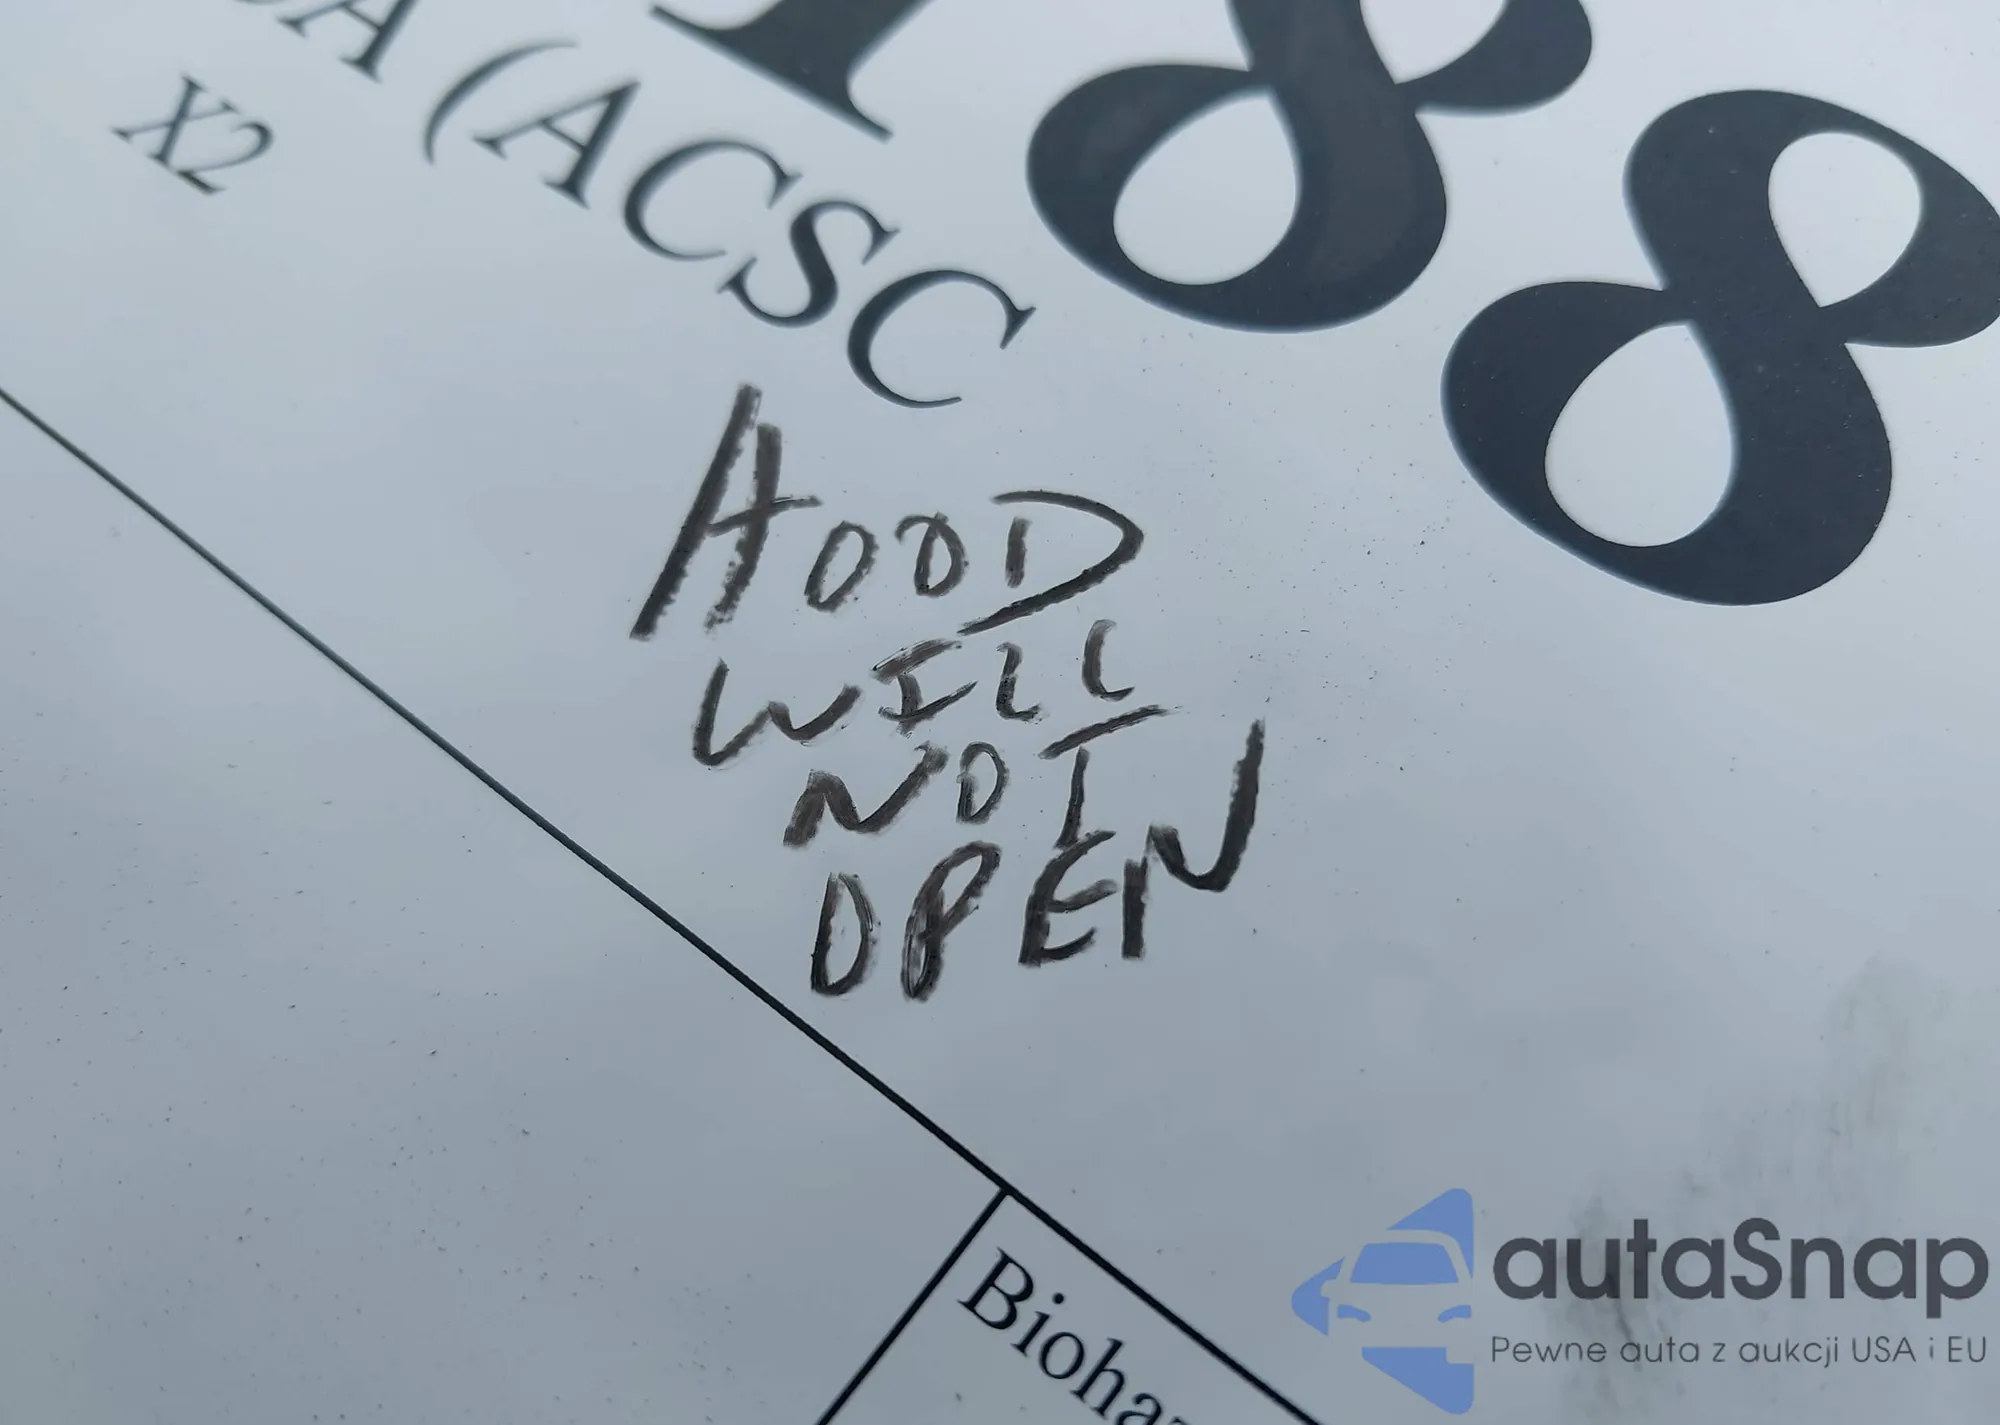 (ACSC
188
X2
HOOD
WILL
NOT
OPEN
autaSnap
Pewne auta z aukcji USA i EU